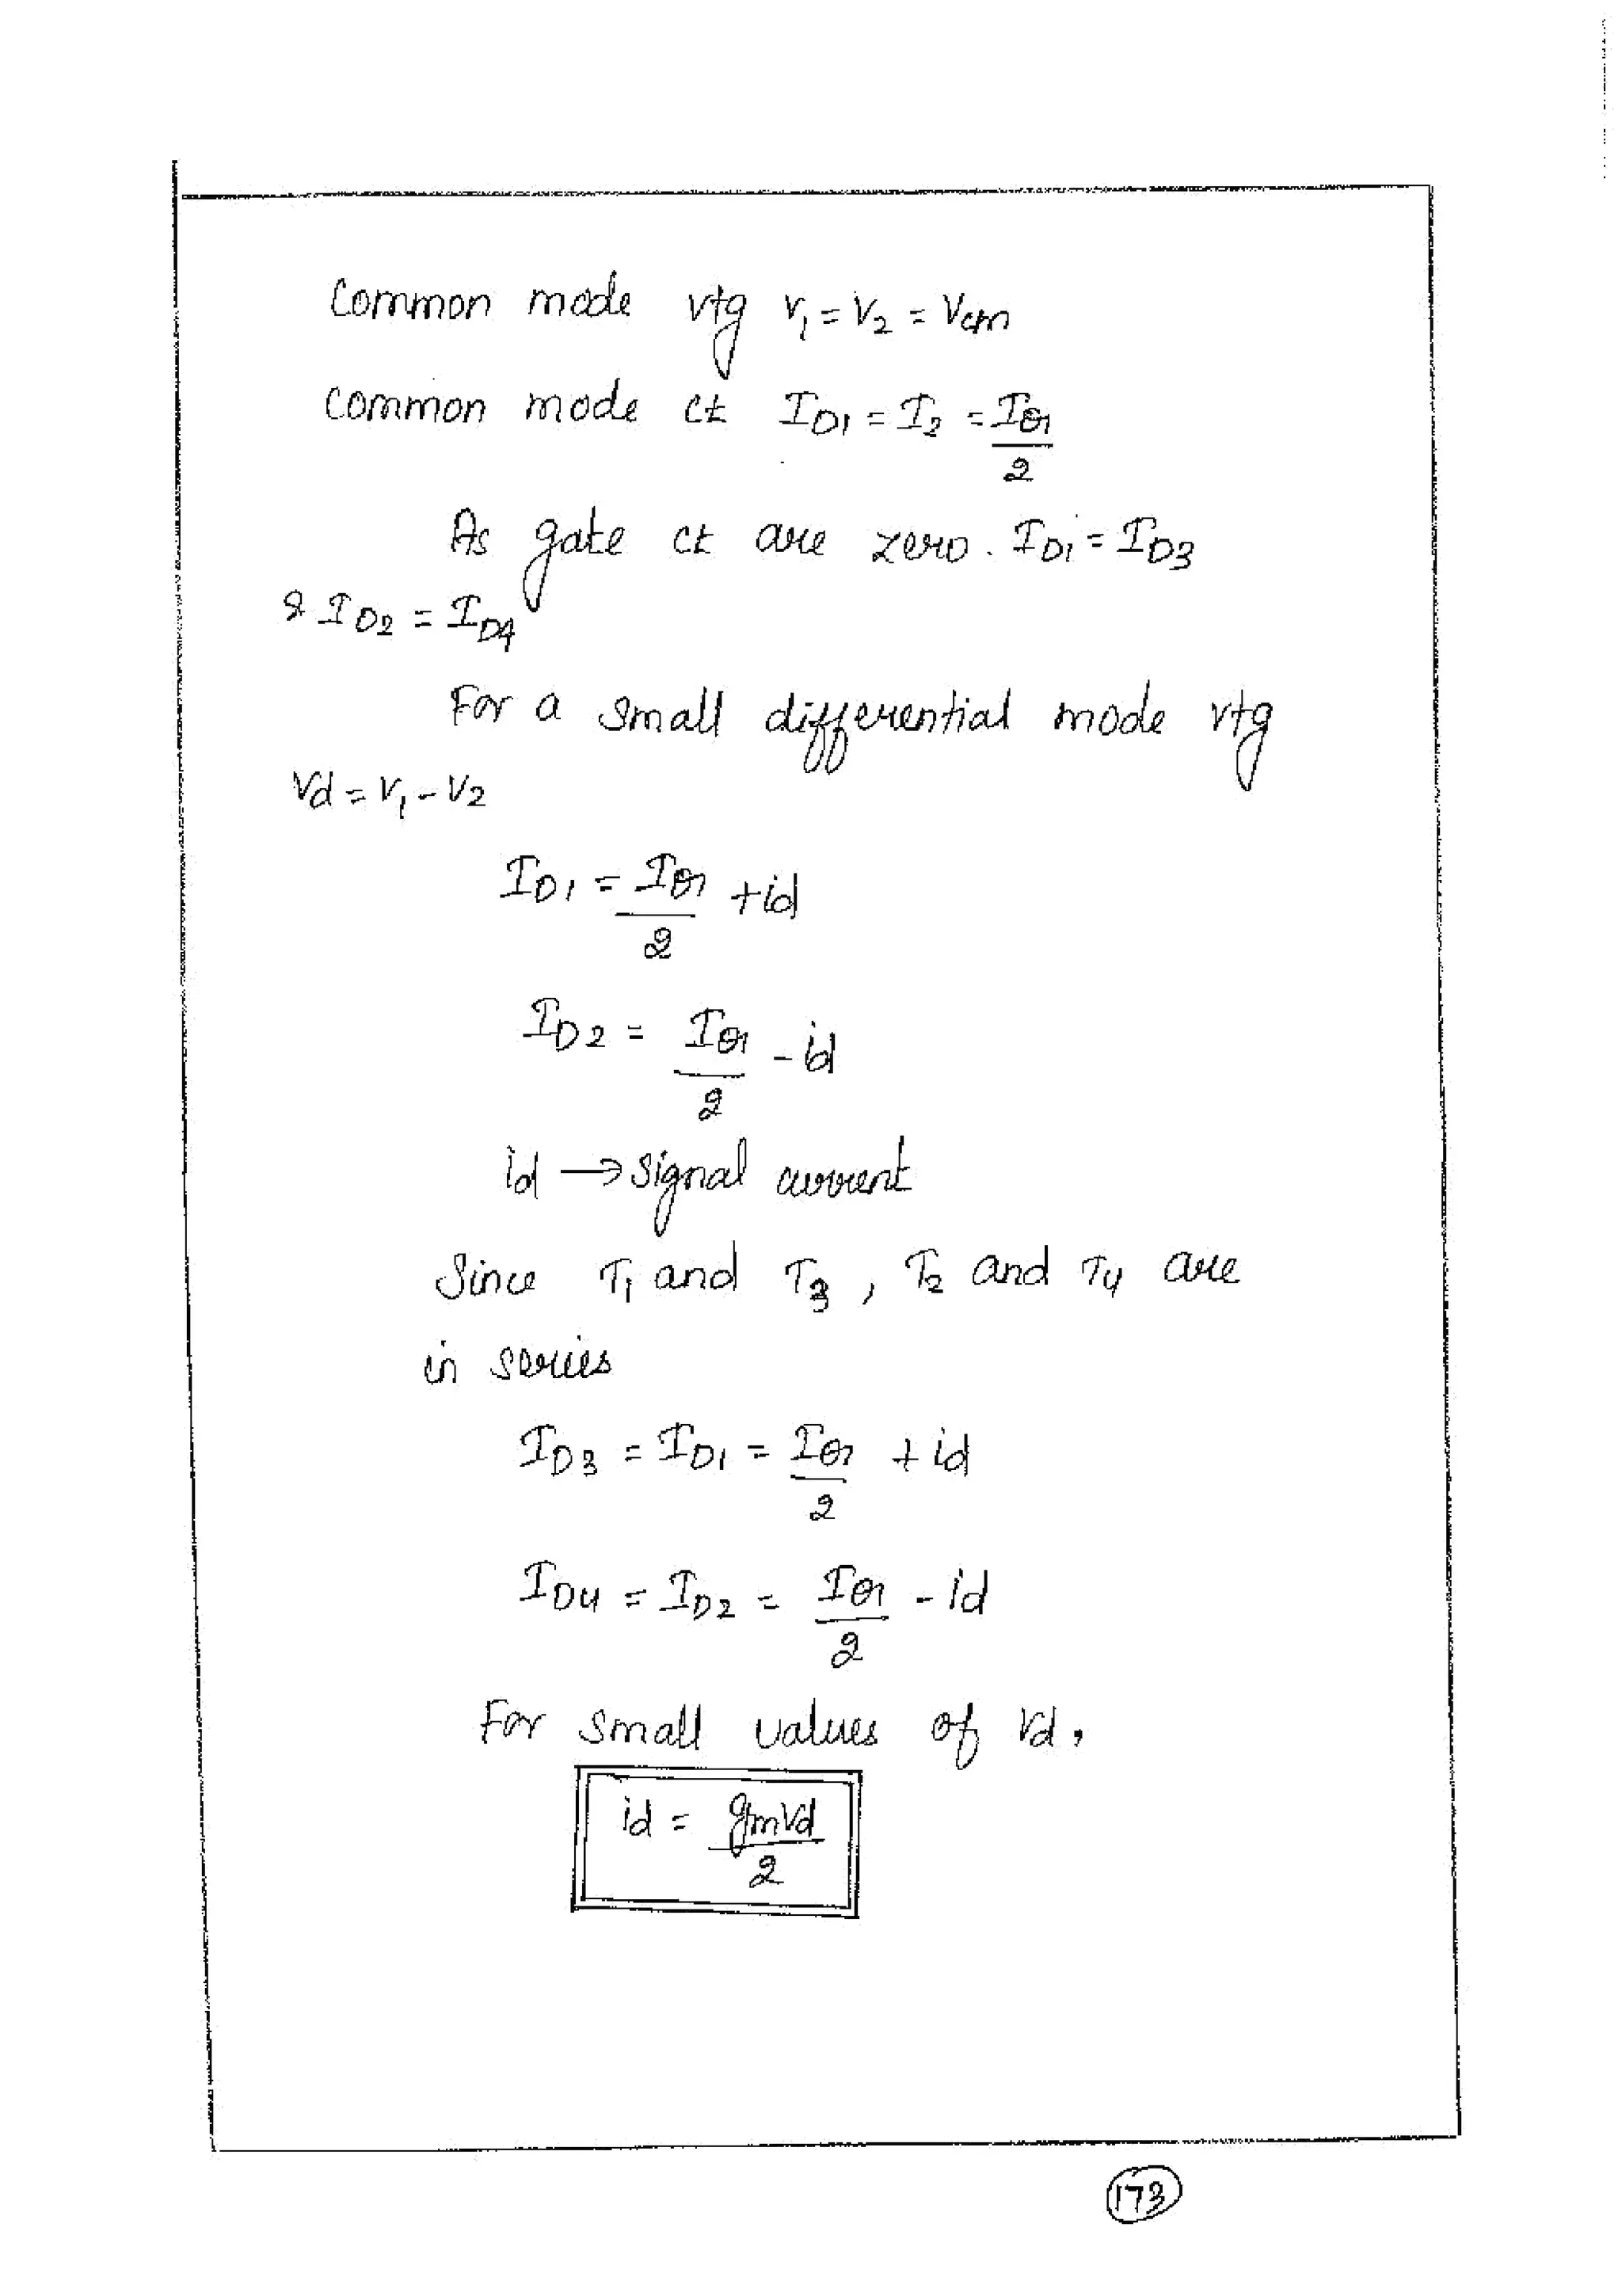 Common mode vtg V1 = V2 = Vcm
Common mode ct ID1 = I2 = IQ/2
As gate ct are zero. ID1 = ID3
& ID2 = ID4
For a small differential mode vtg
Vd = V1 - V2
ID1 = IQ/2 + id
ID2 = IQ/2 - id
id → signal current
Since T1 and T3, T2 and T4 are
in series
ID3 = ID1 = IQ/2 + id
ID4 = ID2 = IQ/2 - id
For small values of Vd,
id = gmVd/2
173